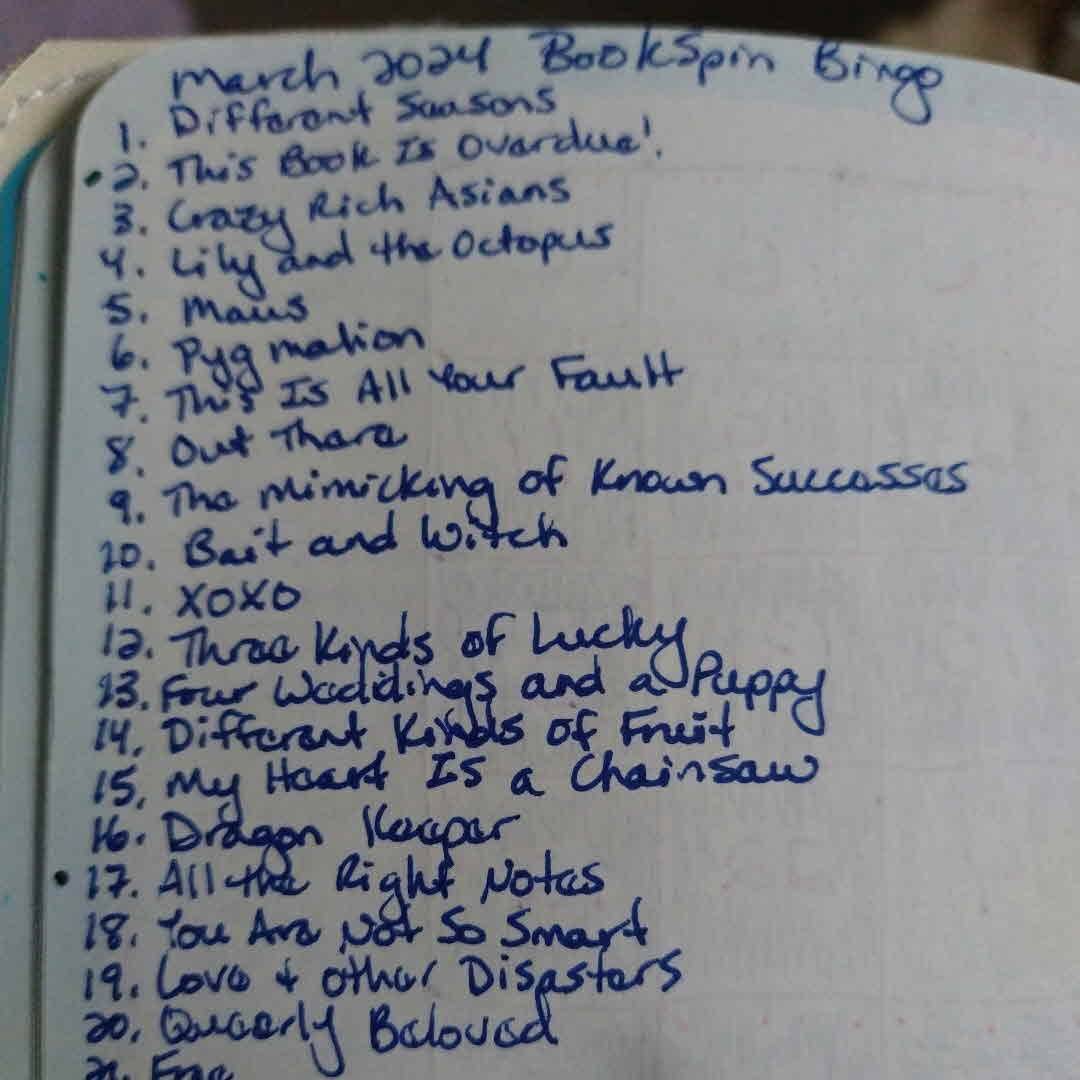 March 2024 BookSpin Bingo
1. Different Seasons
2. This Book Is Overdue!
3. Crazy Rich Asians
4. Lily and the Octopus
5. Maus
6. Pygmalion
7. This Is All Your Fault
8. Out There
9. The Mimicking of Known Successes
10. Bait and Witch
11. XOXO
12. Three Kinds of Lucky
13. Four Weddings and a Puppy
14. Different Kinds of Fruit
15. My Heart Is a Chainsaw
16. Dragon Keeper
17. All the Right Notes
18. You Are Not So Smart
19. Love + Other Disasters
20. Queerly Beloved
21.